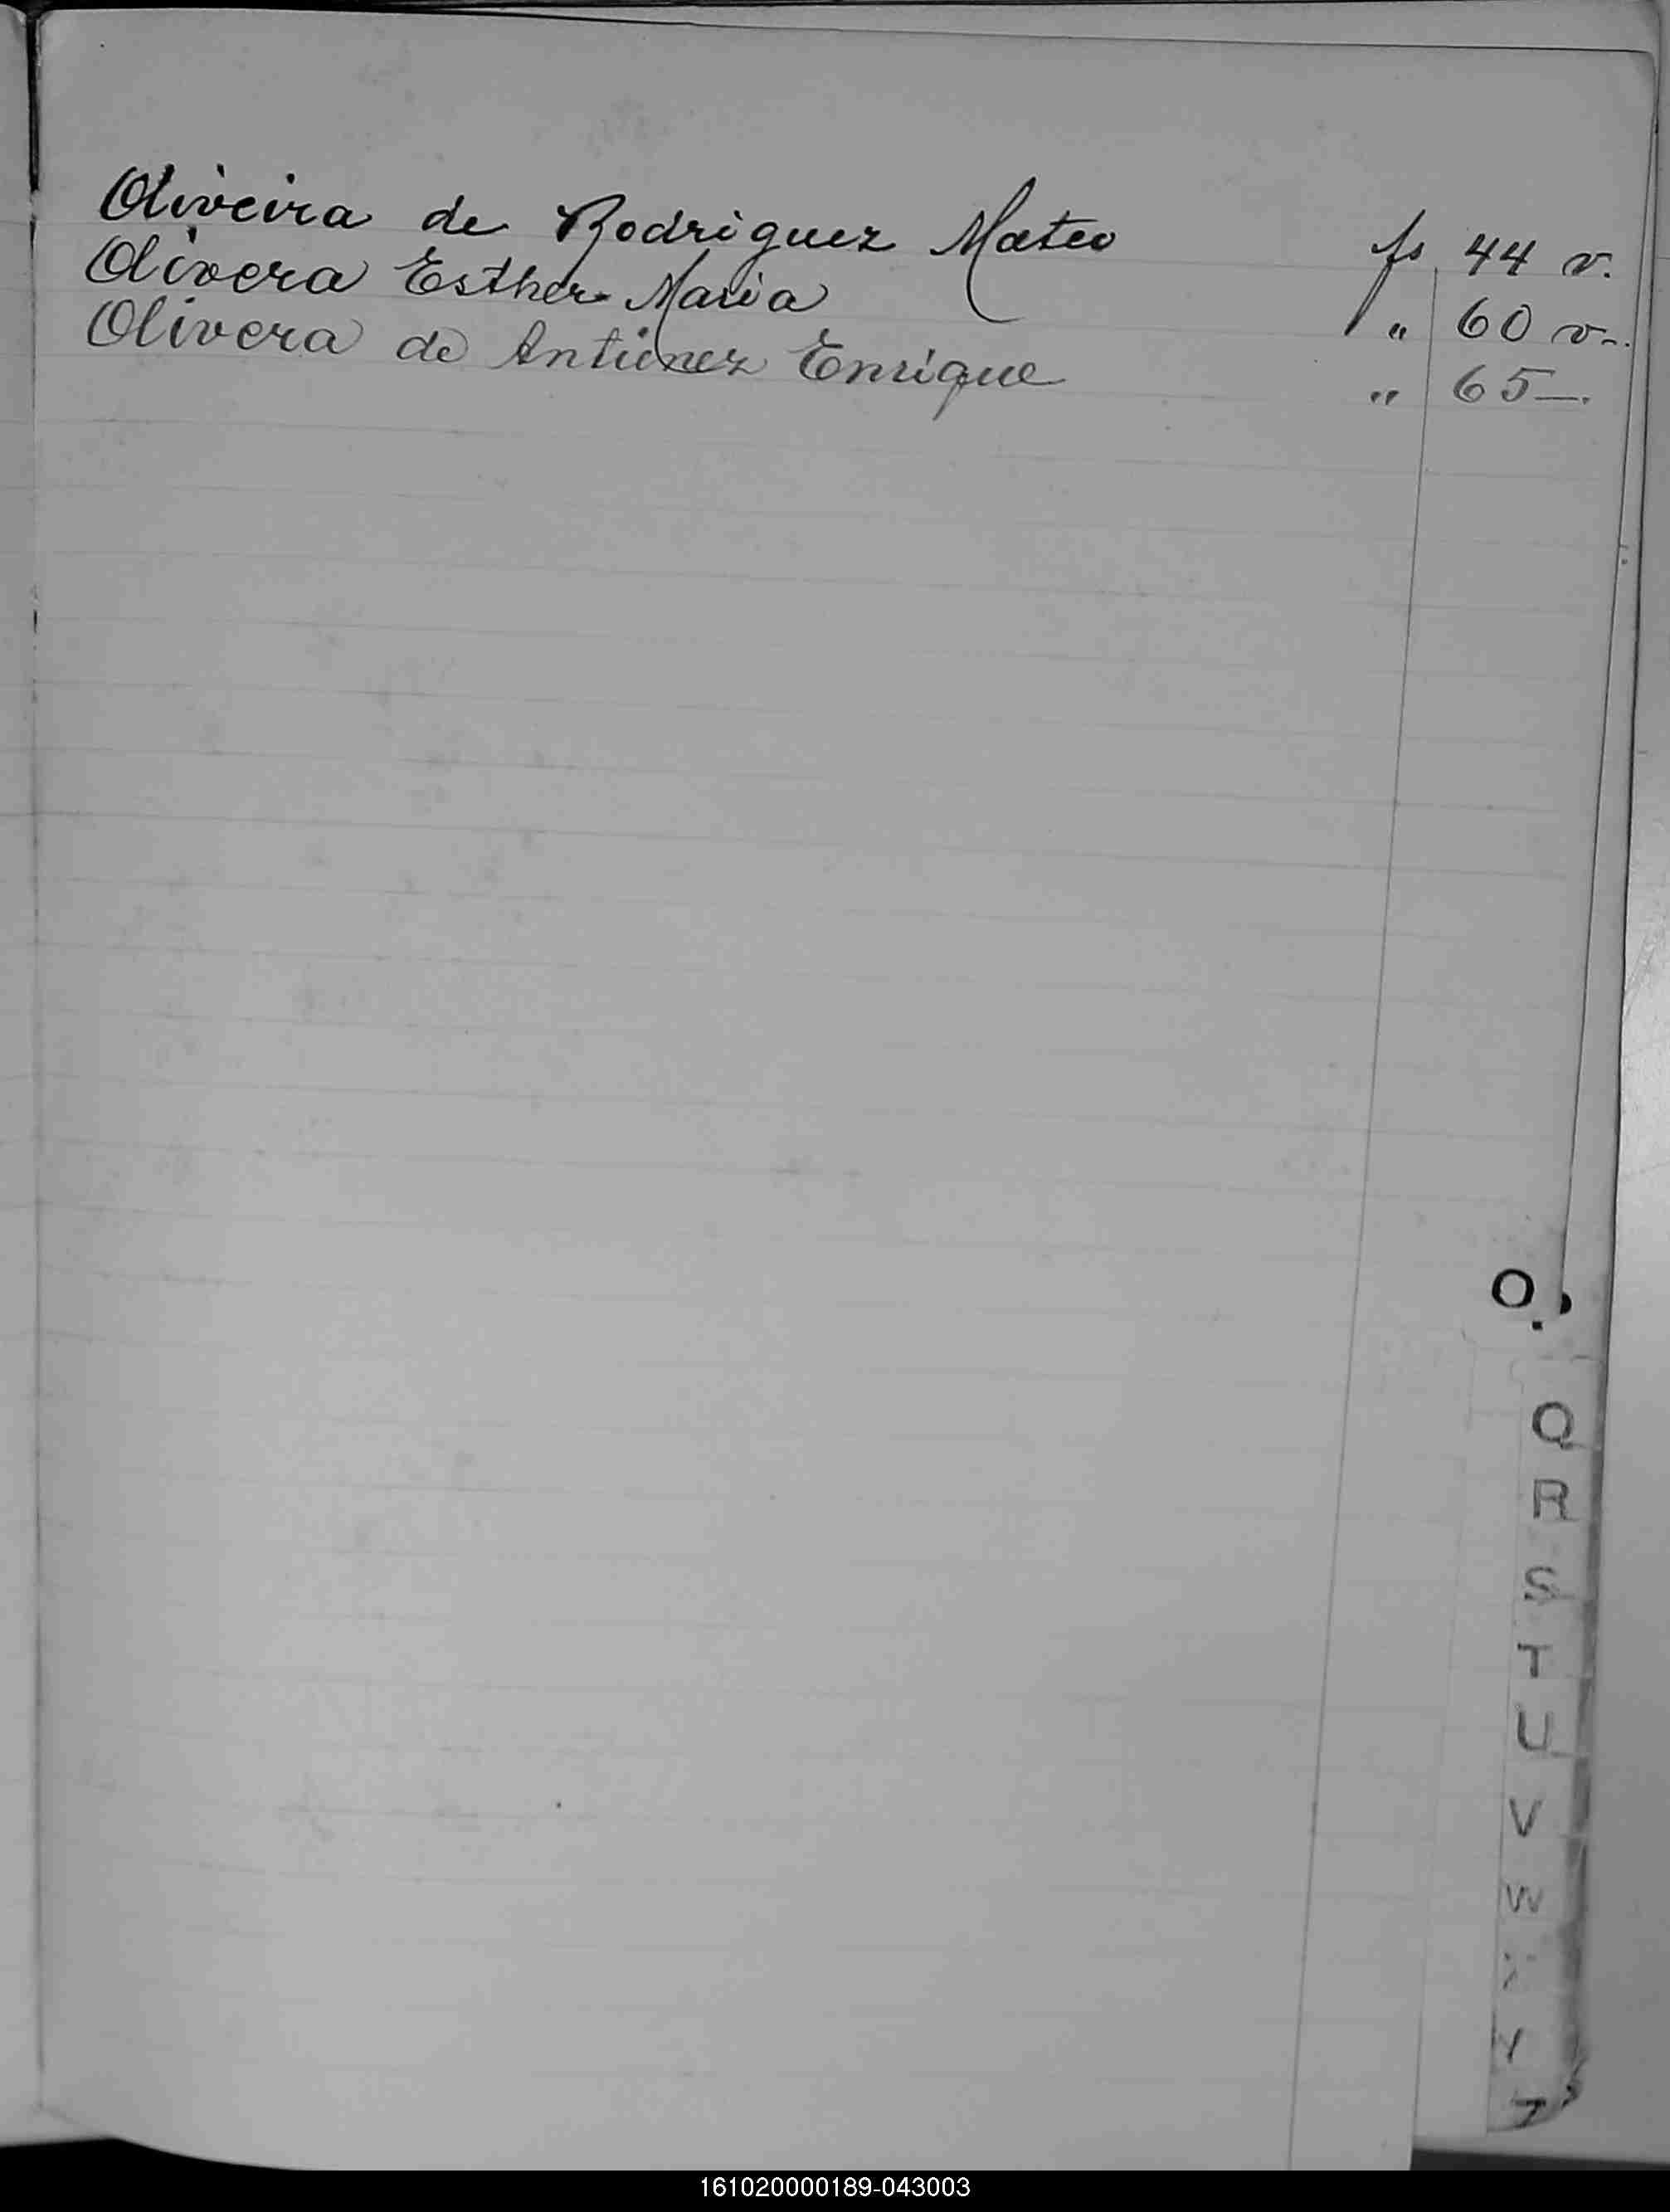 Oliveira de Rodriguez Mateo fs 44 v.
Olivera Esther Maria " 60 v-.
Olivera de Antunez Enrique " 65-.
O.
Q
R
S
T
U
V
W
X
Y
Z
161020000189-043003